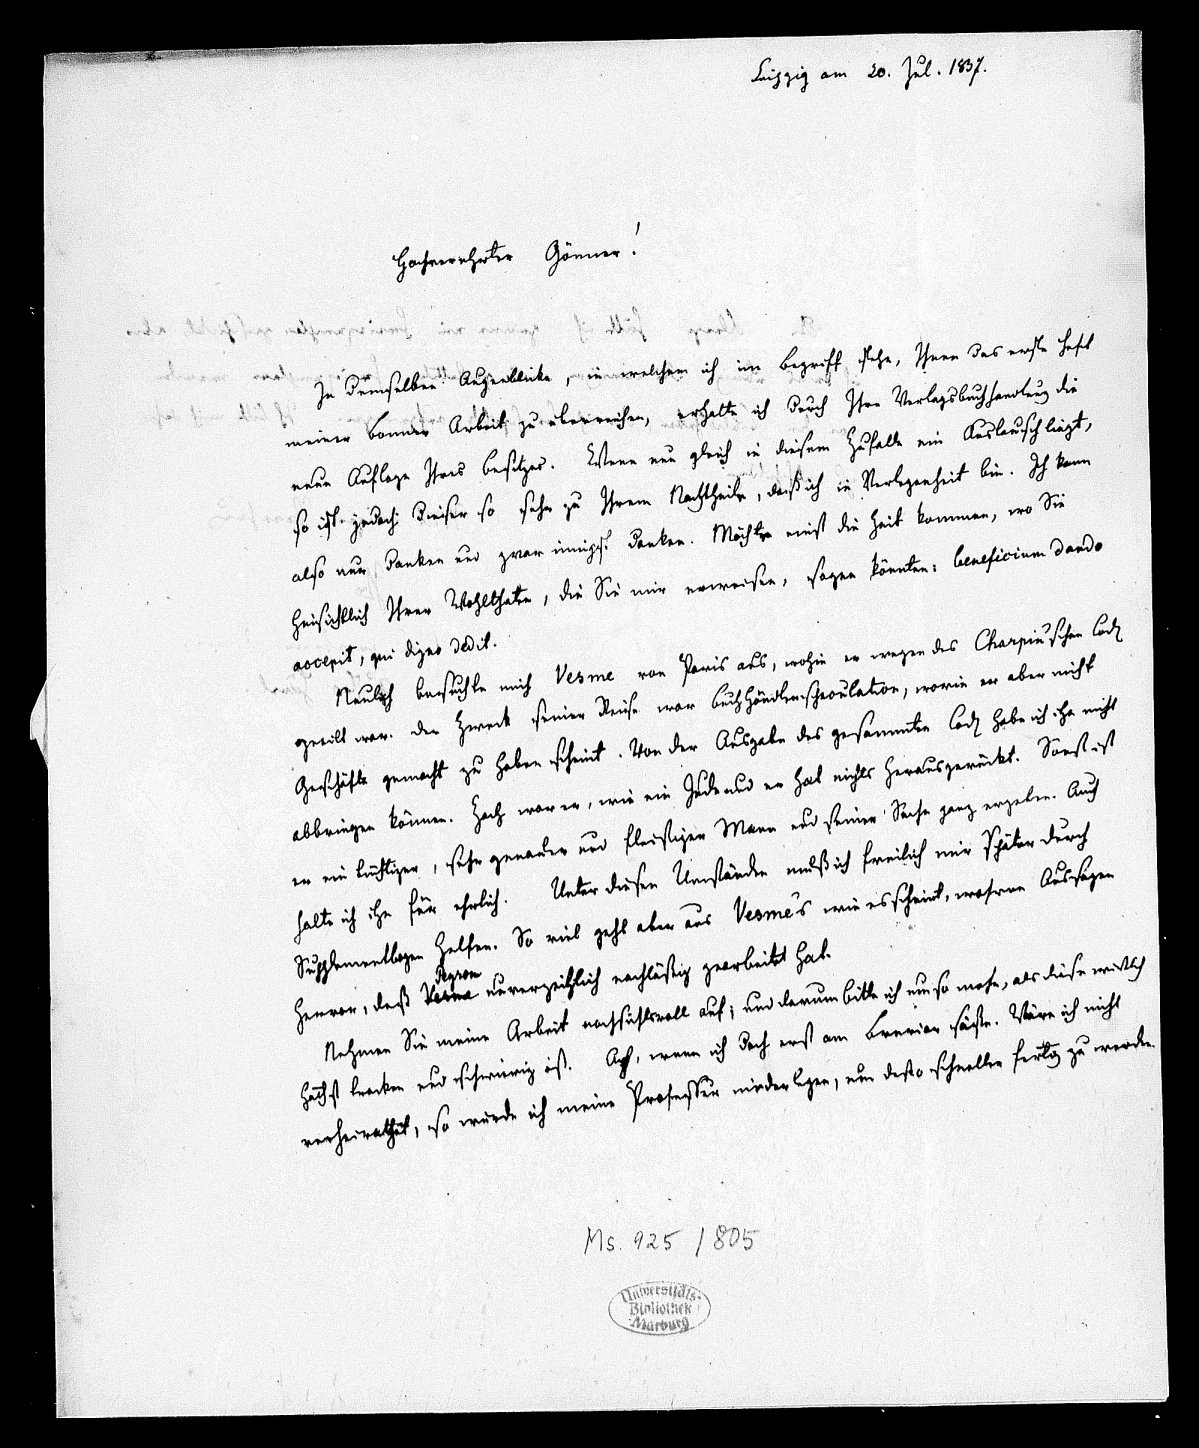 Leipzig am 20. Jul. 1837.
Hochverehrter Gönner!
In demselben Augenblicke, in welchem ich im Begriff stehe, Ihnen das erste Heft
meiner Bonner Arbeit zu überreichen, erhalte ich durch Ihre Verlagsbuchhandlung die
neue Auflage Ihres Besitzes. Wenn nun gleich in diesem Zufalle ein Austausch liegt,
so ist jedoch dieser so sehr zu Ihrem Nachtheile, daß ich in Verlegenheit bin. Ich kann
also nur danken und zwar innigst danken. Möchte einst die Zeit kommen, wo Sie
hinsichtlich Ihrer Wohlthaten, die Sie mir erweisen, sagen könnten: beneficium dando
accepit, qui digno dedit.
Neulich besuchte mich Vesme von Paris aus, wohin er wegen des Charpin'schen Cod
geeilt war. Der Zweck seiner Reise war Buchhändlerspeculation, worin er aber nicht
Geschäfte gemacht zu haben scheint. Von der Ausgabe des gesammten Cod habe ich ihn nicht
abbringen können. Zäh war er, wie ein Jude und er hat nichts herausgerückt. Sonst ist
er ein tüchtiger, sehr genauer und fleißiger Mann und seiner Sache ganz ergeben. Auch
halte ich ihn für ehrlich. Unter diesen Umständen muß ich freilich mir später durch
Supplementbogen helfen. So viel geht aber aus Vesme's wie es scheint, wahren Aussagen
hervor, daß Peyron unverzeihlich nachläßig gearbeitet hat.
Nehmen Sie meine Arbeit nachsichtsvoll auf; und darum bitte ich um so mehr, als diese wirklich
höchst trocken und schwierig ist. Ach, wenn ich doch erst am Brevier säße. Wäre ich nicht
verheirathet, so würde ich meine Professur niederlegen, um desto schneller fertig zu werden.
Ms. 925 / 805
Universitäts-
Bibliothek
Marburg